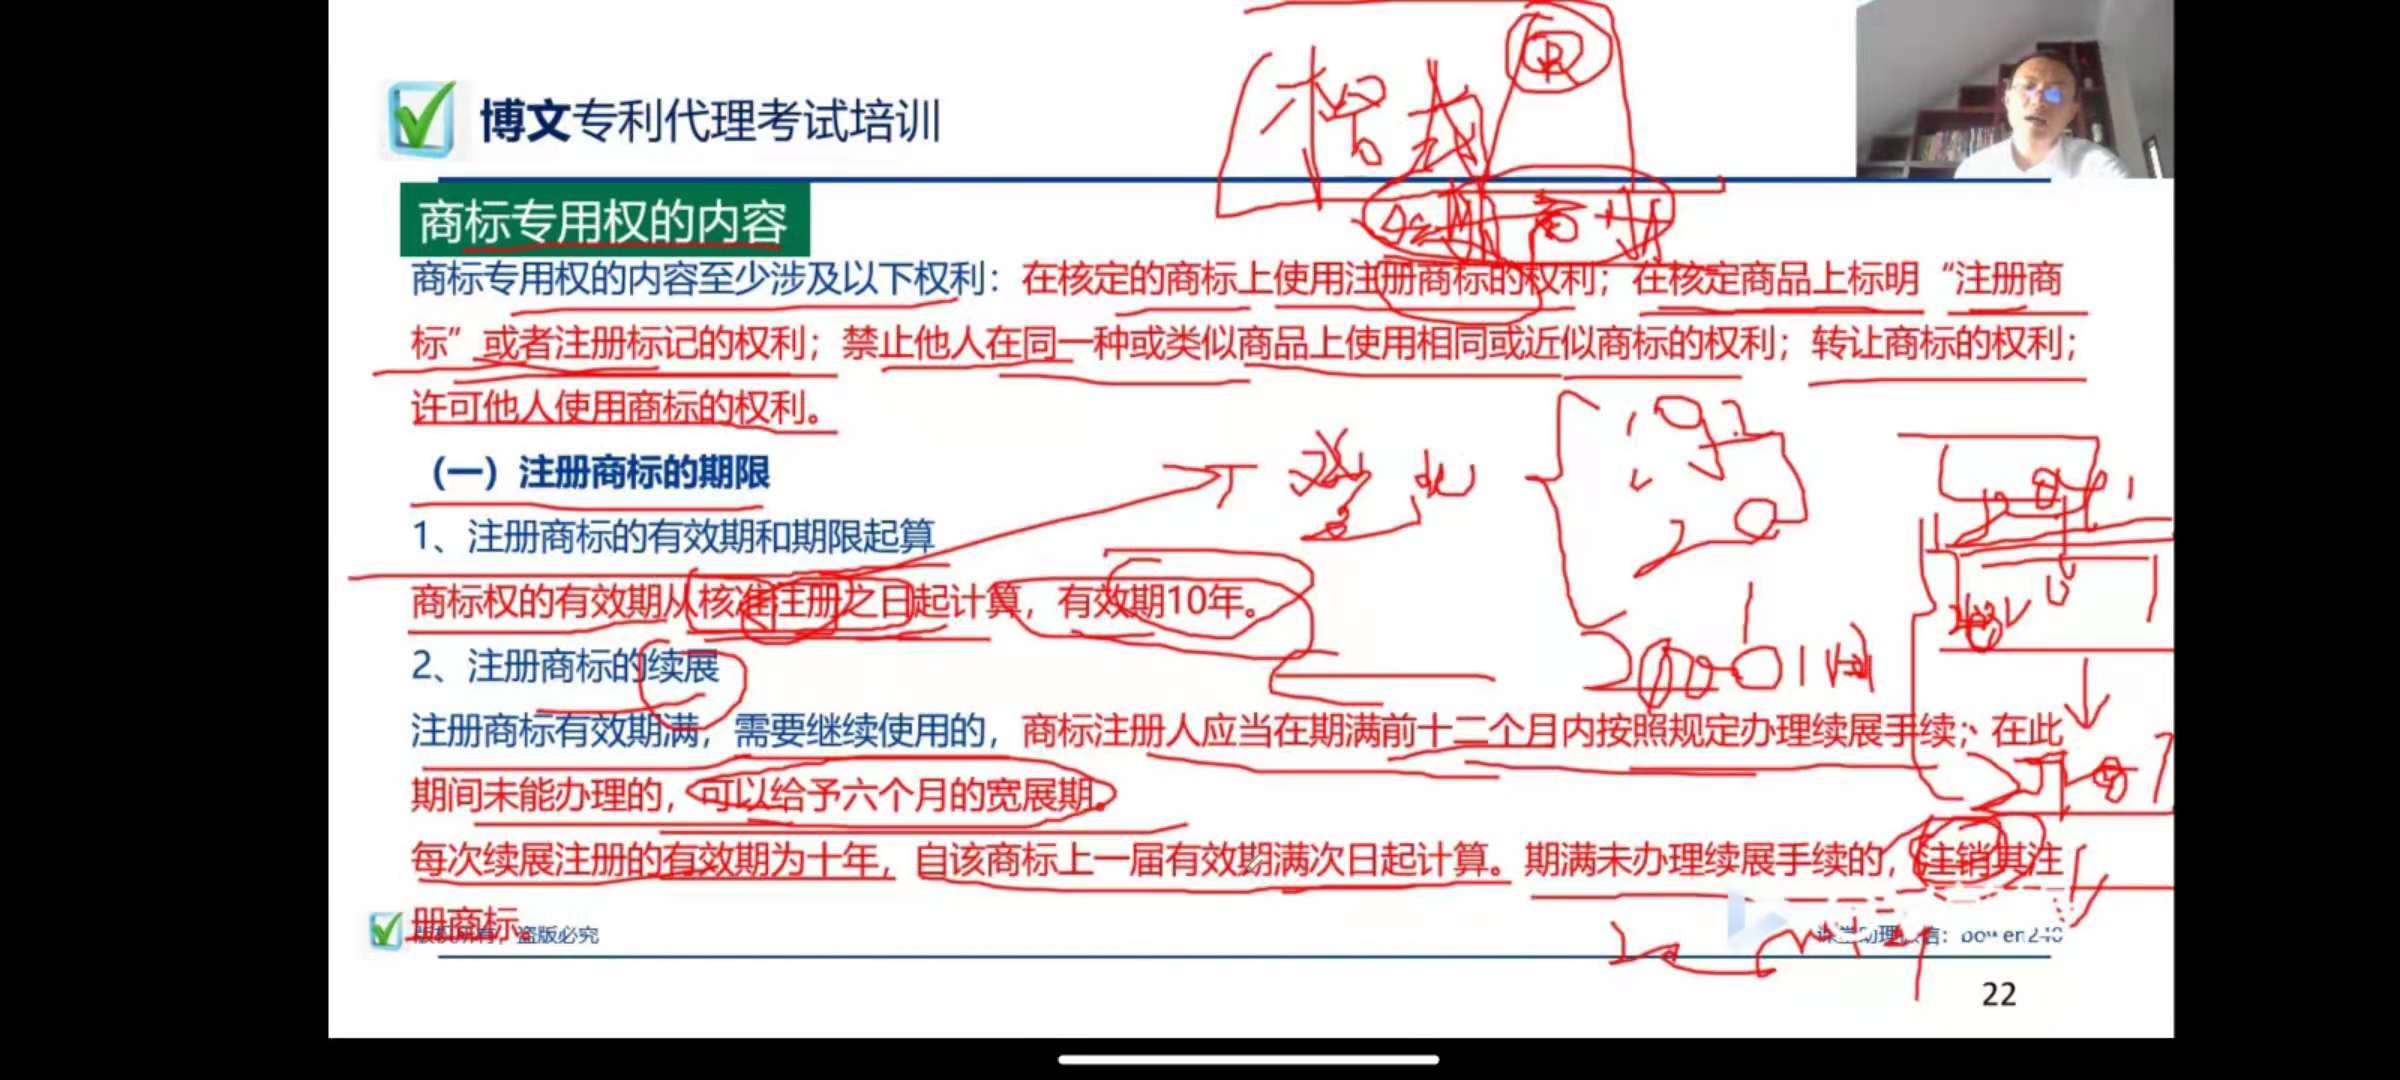 博文专利代理考试培训
R
商标专用权的内容
商标专用权的内容至少涉及以下权利：在核定的商标上使用注册商标的权利；在核定商品上标明“注册商
标”或者注册标记的权利；禁止他人在同一种或类似商品上使用相同或近似商标的权利；转让商标的权利；
许可他人使用商标的权利。
（一）注册商标的期限
1、注册商标的有效期和期限起算
商标权的有效期从核准注册之日起计算，有效期10年。
2、注册商标的续展
注册商标有效期满，需要继续使用的，商标注册人应当在期满前十二个月内按照规定办理续展手续；在此
期间未能办理的，可以给予六个月的宽展期。
每次续展注册的有效期为十年，自该商标上一届有效期满次日起计算。期满未办理续展手续的，注销其注
册商标。
版权所有，盗版必究
22